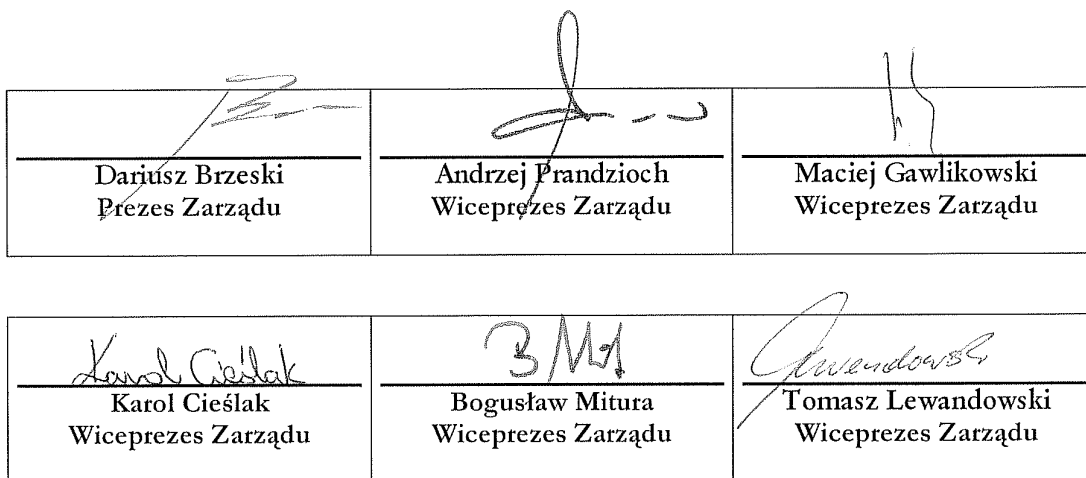 Dariusz Brzeski
Prezes Zarządu
Andrzej Prandzioch
Wiceprezes Zarządu
Maciej Gawlikowski
Wiceprezes Zarządu
Karol Cieślak
Karol Cieślak
Wiceprezes Zarządu
Bogusław Mitura
Wiceprezes Zarządu
Lewandowski
Tomasz Lewandowski
Wiceprezes Zarządu